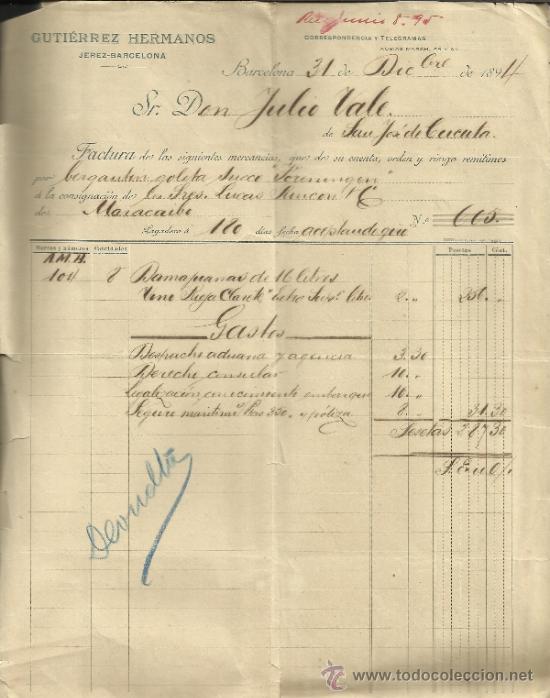 Rec Junio 8. 95
GUTIÉRREZ HERMANOS
JEREZ-BARCELONA
CORRESPONDENCIA Y TELEGRAMAS
AUSIAS MARCH,
Barcelona 31 de Dicbre de 1894
Sr. Don Julio Vale.
de San José de Cucuta
Factura de las siguientes mercancías, que de su cuenta, orden y riesgo remitimos
por bergantin goleta sueco
á la consignación de los Sres. Lucas Rincon y C
de Maracaibo
Pagadero á 180 días fecha
N.º 665
Marcas y números Cantidades
Pesetas Cént.
A.M.H.
104 8 Damajuanas de 16 litros
Vino Rioja Clarete 2 „ 256 „
Gastos
Despacho aduana y agencia 3.30
Derecho consular 10 „
Legalización conocimiento embarque 10 „
Seguro maritimo Ptas 330 „ y poliza 8 „ 31.30
Pesetas 287 30
S. E. u O.
Devuelta
todocoleccion.net
www.todocoleccion.net